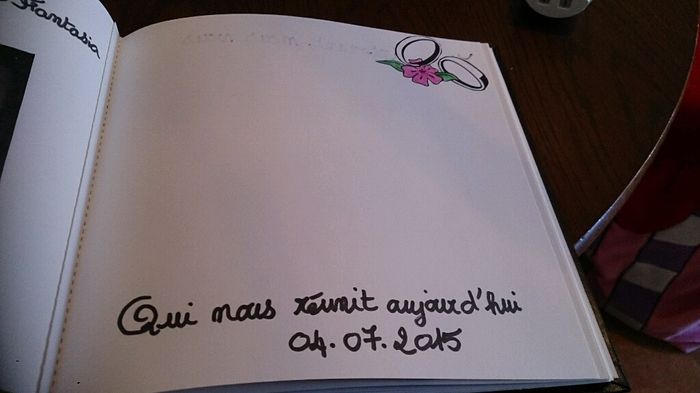 Fantasia
Qui nous réunit aujourd'hui
04.07.2015